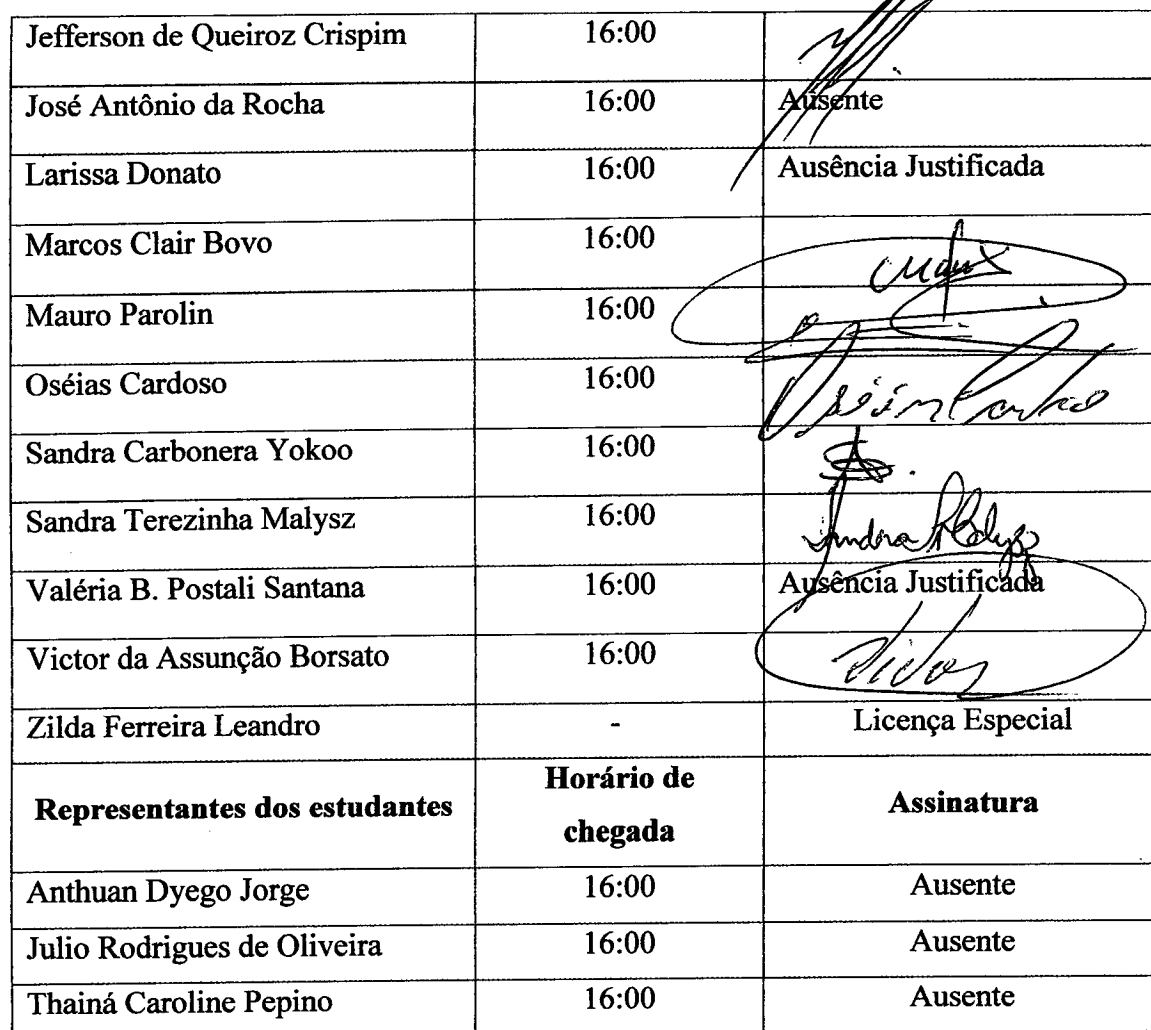 Jefferson de Queiroz Crispim 16:00
José Antônio da Rocha 16:00 Ausente
Larissa Donato 16:00 Ausência Justificada
Marcos Clair Bovo 16:00
Mauro Parolin 16:00
Oséias Cardoso 16:00
Sandra Carbonera Yokoo 16:00
Sandra Terezinha Malysz 16:00 Sandra
Valéria B. Postali Santana 16:00 Ausência Justificada
Victor da Assunção Borsato 16:00
Zilda Ferreira Leandro - Licença Especial
Representantes dos estudantes Horário de chegada Assinatura
Anthuan Dyego Jorge 16:00 Ausente
Julio Rodrigues de Oliveira 16:00 Ausente
Thainá Caroline Pepino 16:00 Ausente